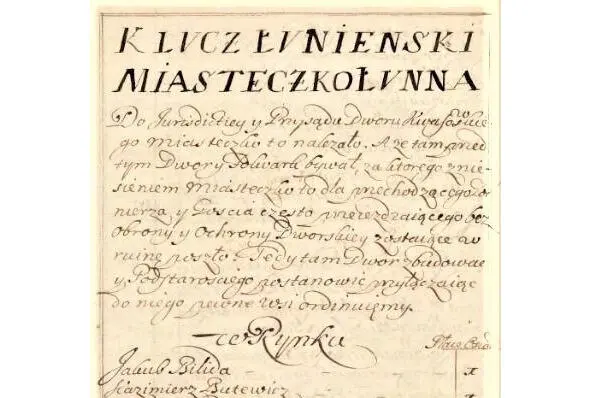 KLUCZ ŁUNIENSKI
MIASTECZKO ŁUNNA
Do Jurisdictiey y Prysądu Dworu Kwasowskie
go miasteczko to nalezało. A ze tam pred
tym Dwor y Folwark bywał, za ktorego znie
sieniem miasteczko to dla prechodzącego zoł
nierza y Goscia często prieiezdzaiącego bez
obrony y Ochrony Dworskiey zostaiąc w
ruinę poszło. Tedy tam Dwor zbudowac
y Podstarosciego postanowic wyłączaiąc
do niego pewne wsi ordinuiemy.
w Rynku
Jakub Bilida
Kazimierz Butewicz